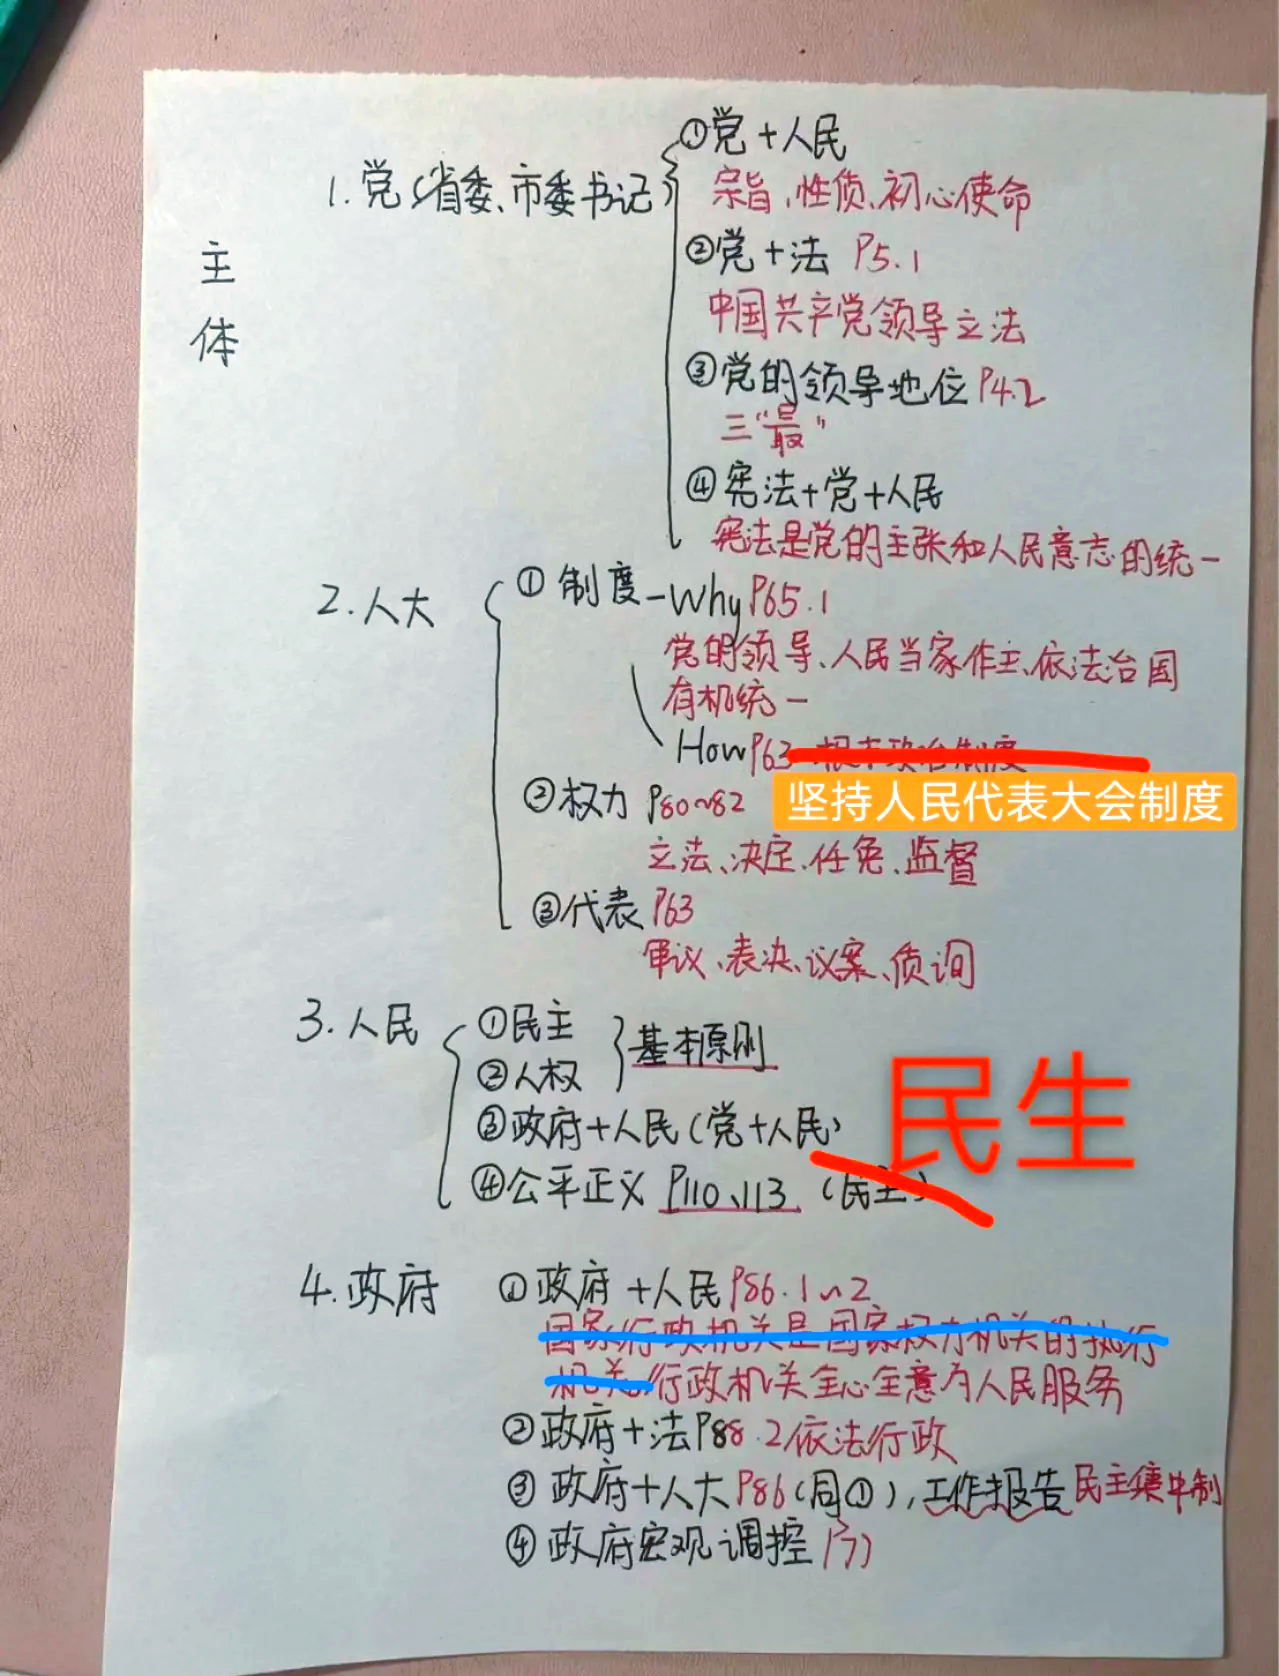 主
体
1.党(省委、市委书记)
①党+人民
宗旨、性质、初心使命
②党+法 P5.1
中国共产党领导立法
③党的领导地位 P4.2
三“最”
④宪法+党+人民
宪法是党的主张和人民意志的统一
2.人大
①制度-Why P65.1
党的领导、人民当家作主、依法治国
有机统一
How P63 根本政治制度
坚持人民代表大会制度
②权力 P80~82
立法、决定、任免、监督
③代表 P63
审议、表决、议案、质询
3.人民
①民主
②人权
基本原则
③政府+人民(党+人民)
民生
④公平正义 P110、113 (民主)
4.政府
①政府+人民 P86.1~2
国家行政机关是国家权力机关的执行
机关 行政机关全心全意为人民服务
②政府+法 P88.2 依法行政
③政府+人大 P86(同①),工作报告 民主集中制
④政府宏观调控